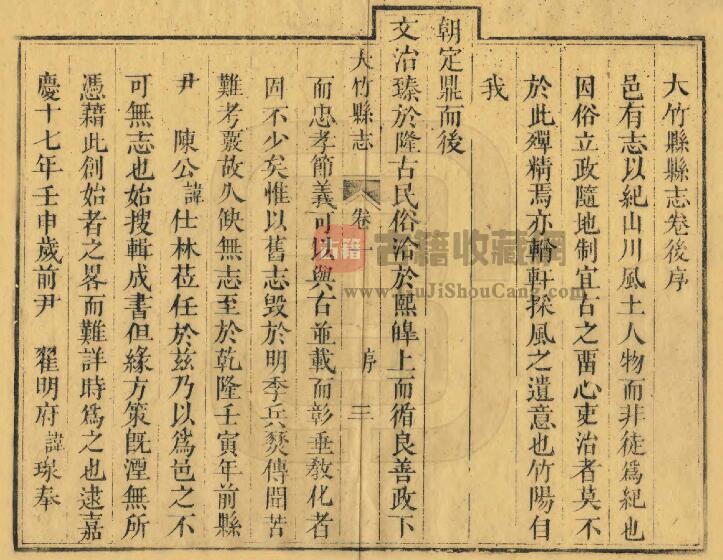 大竹縣縣志卷後序
邑有志以紀山川風土人物而非徒爲紀也
因俗立政隨地制宜古之畱心吏治者莫不
於此殫精焉亦輶軒採風之遺意也竹陽自
我
朝定鼎而後
文治臻於隆古民俗洽於熙皥上而循良善政下
大竹縣志 卷一 序 三
而忠孝節義可以與古並載而彰垂教化者
固不少矣惟以舊志毀於明季兵燹傳聞苦
難考覈故久缺無志至於乾隆壬寅年前縣
尹 陳公諱仕林莅任於兹乃以爲邑之不
可無志也始搜輯成書但緣方策旣湮無所
憑藉此創始者之畧而難詳時爲之也逮嘉
慶十七年壬申歲前尹 翟明府諱琭奉
古籍 古籍收藏網
www.GuJiShouCang.com